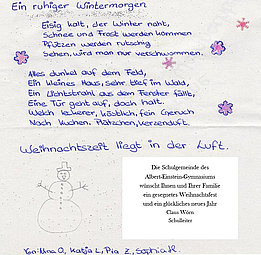 Ein ruhiger Wintermorgen
Eisig kalt, der Winter naht,
Schnee und Frost werden kommen
Pfützen werden rutschig
Sehen, wird man nur verschwommen.
Alles dunkel auf dem Feld,
Ein kleines Haus, sehr tief im Wald,
Ein Lichtstrahl aus dem Fenster fällt,
Eine Tür geht auf, doch halt.
Welch leckerer, köstlich, fein Geruch
Nach Kuchen, Plätzchen, Kerzenduft.
Weihnachtszeit liegt in der Luft.
Die Schulgemeinde des
Albert-Einstein-Gymnasiums
wünscht Ihnen und Ihrer Familie
ein gesegnetes Weihnachtsfest
und ein glückliches neues Jahr
Claus Wörn
Schulleiter
O, Katja L, Pia Z, Sophia R.